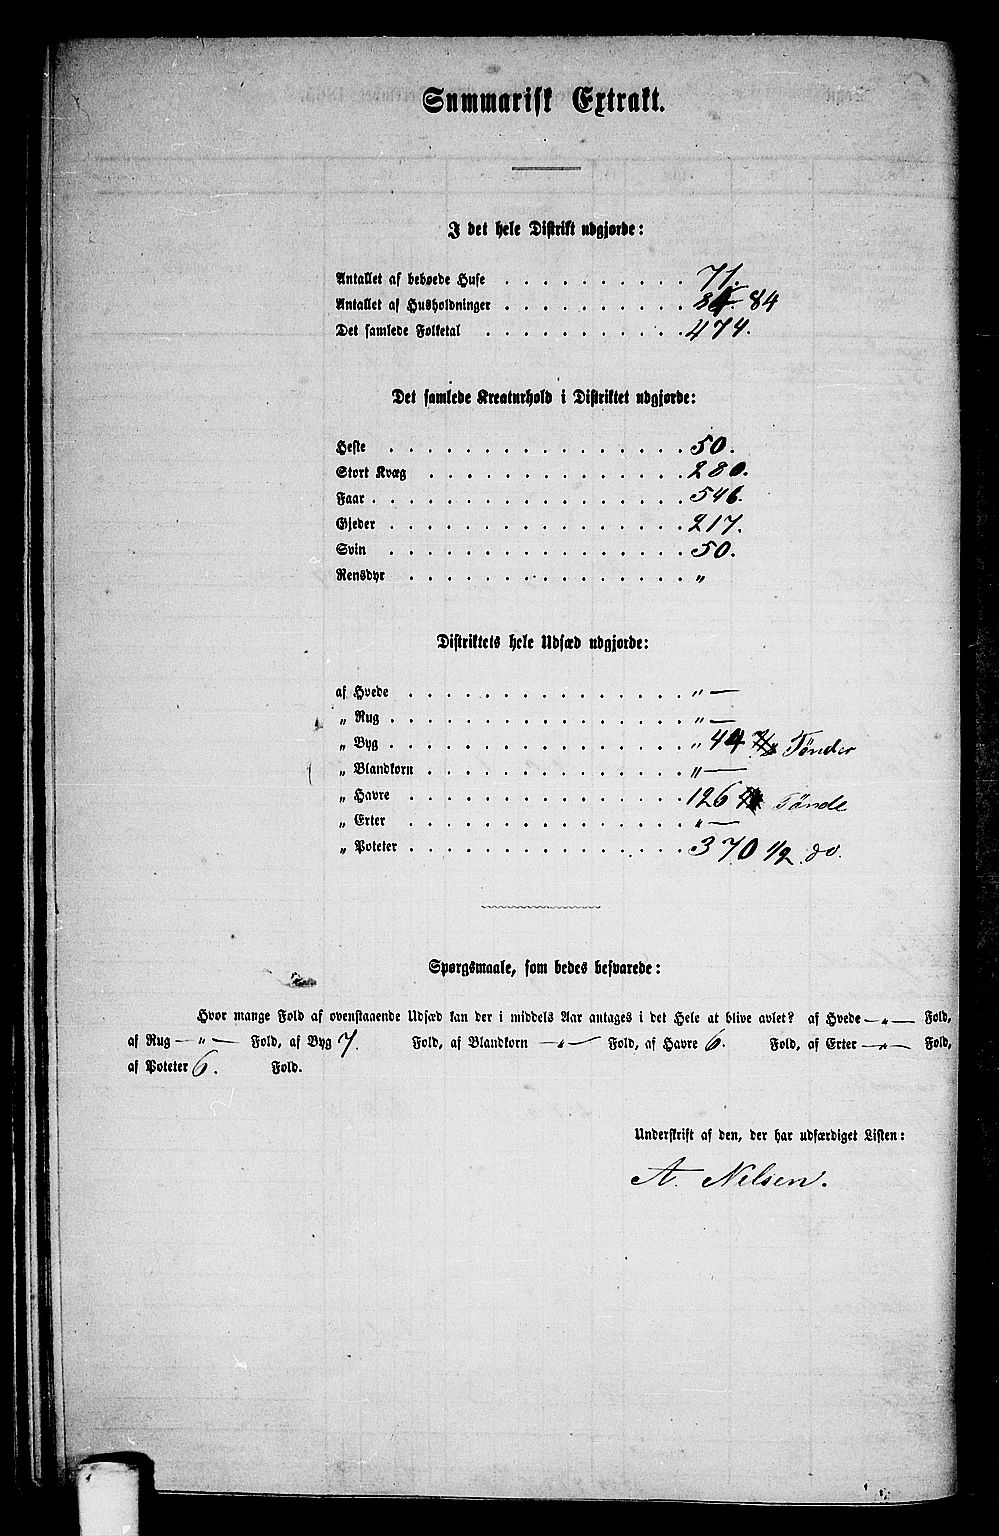 Summarisk Extrakt.
I det hele Distrikt udgjorde:
Antallet af beboede Huse . . . . . . . . . . 71.
Antallet af Husholdninger . . . . . . . . . . 84
Det samlede Folketal . . . . . . . . . . . 474.
Det samlede Kreaturhold i Distriktet udgjorde:
Heste . . . . . . . . . . . . . . . . 50.
Stort Kvæg . . . . . . . . . . . . . . 280.
Faar . . . . . . . . . . . . . . . . . 546.
Gjeder . . . . . . . . . . . . . . . . 217.
Svin . . . . . . . . . . . . . . . . 50.
Rensdyr . . . . . . . . . . . . . . . "
Distriktets hele Udsæd udgjorde:
af Hvede . . . . . . . . . . . . . . . " —
" Rug . . . . . . . . . . . . . . . . " —
" Byg . . . . . . . . . . . . . . . . " 44 Tønder
" Blandkorn . . . . . . . . . . . . . . " —
" Havre . . . . . . . . . . . . . . . 126 Tønde
" Erter . . . . . . . . . . . . . . . " —
" Poteter . . . . . . . . . . . . . . . 370 1/2 do.
Spørgsmaale, som bedes besvarede:
Hvor mange Fold af ovenstaaende Udsæd kan der i middels Aar antages i det Hele at blive avlet? af Hvede — " — Fold,
af Rug — " — Fold, af Byg 7. Fold, af Blandkorn — " — Fold, af Havre 6. Fold, af Erter — " — Fold,
af Poteter 6. Fold.
Underskrift af den, der har udfærdiget Listen:
A. Nilsen.